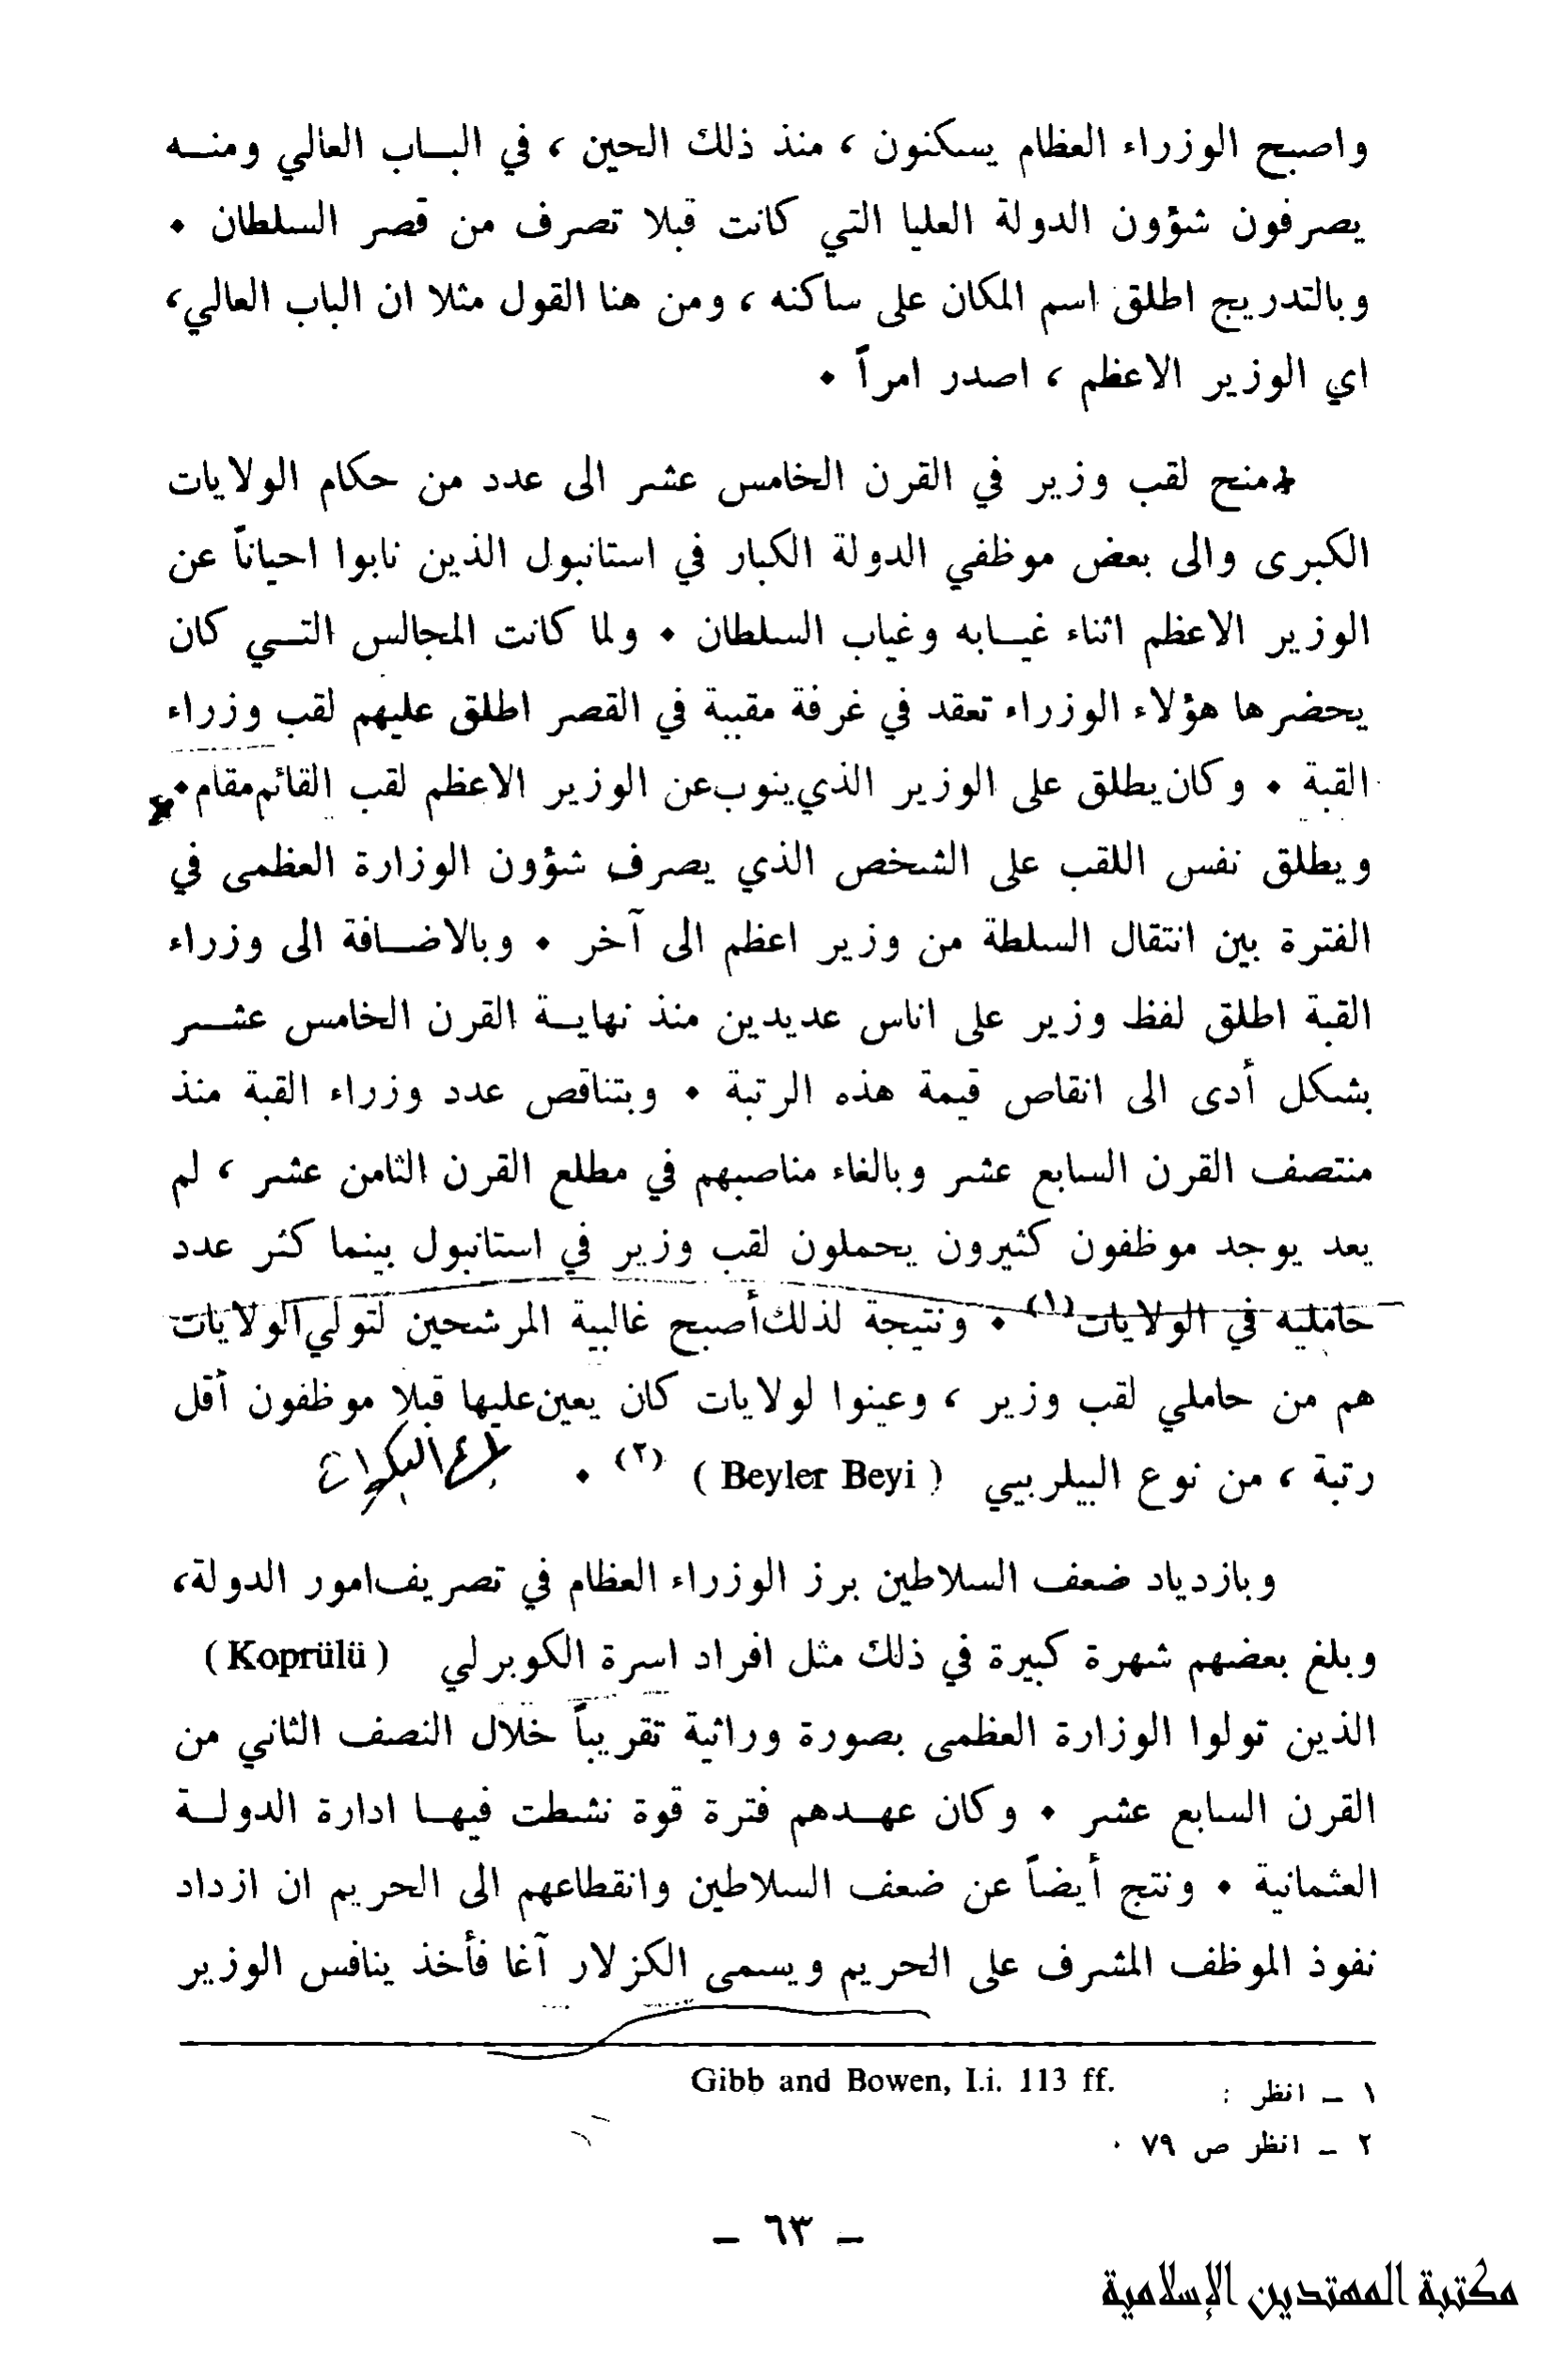 واصبح الوزراء العظام يسكنون ، منذ ذلك الحين ، في البـاب العالي ومنـه
يصرفون شؤون الدولة العليا التي كانت قبلا تصرف من قصر السلطان ٠
وبالتدريج اطلق اسم المكان على ساكنه ، ومن هنا القول مثلا ان الباب العالي،
اي الوزير الاعظم ، اصدر امراً ٠
منح لقب وزير في القرن الخامس عشر الى عدد من حكام الولايات
الكبرى والى بعض موظفي الدولة الكبار في استانبول الذين نابوا احياناً عن
الوزير الاعظم اثناء غيـابه وغياب السلطان ٠ ولما كانت المجالس التـي كان
يحضرها هؤلاء الوزراء تعقد في غرفة مقببة في القصر اطلق عليهم لقب وزراء
القبة ٠ وكان يطلق على الوزير الذي ينوب عن الوزير الاعظم لقب القائم مقام ٠
ويطلق نفس اللقب على الشخص الذي يصرف شؤون الوزارة العظمى في
الفترة بين انتقال السلطة من وزير اعظم الى آخر ٠ وبالاضـافة الى وزراء
القبة اطلق لفظ وزير على اناس عديدين منذ نهايـة القرن الخامس عشـر
بشكل أدى الى انقاص قيمة هذه الرتبة ٠ وبتناقص عدد وزراء القبة منذ
منتصف القرن السابع عشر وبالغاء مناصبهم في مطلع القرن الثامن عشر ، لم
يعد يوجد موظفون كثيرون يحملون لقب وزير في استانبول بينما كثر عدد
حامليه في الولايات(١) ٠ ونتيجة لذلك أصبح غالبية المرشحين لتولي الولايات
هم من حاملي لقب وزير ، وعينوا لولايات كان يعين عليها قبلا موظفون أقل
رتبة ، من نوع البيلربيي ( Beyler Beyi ) (٢) ٠
وبازدياد ضعف السلاطين برز الوزراء العظام في تصريف امور الدولة،
وبلغ بعضهم شهرة كبيرة في ذلك مثل افراد اسرة الكوبرلي ( Koprülü )
الذين تولوا الوزارة العظمى بصورة وراثية تقريباً خلال النصف الثاني من
القرن السابع عشر ٠ وكان عهـدهم فترة قوة نشطت فيهـا ادارة الدولـة
العثمانية ٠ ونتج أيضاً عن ضعف السلاطين وانقطاعهم الى الحريم ان ازداد
نفوذ الموظف المشرف على الحريم ويسمى الكزلار آغا فأخذ ينافس الوزير
١ ـ انظر : Gibb and Bowen, I.i. 113 ff.
٢ ـ انظر ص ٧٩ ٠
ـ ٦٣ ـ
مكتبة المهتدين الإسلامية